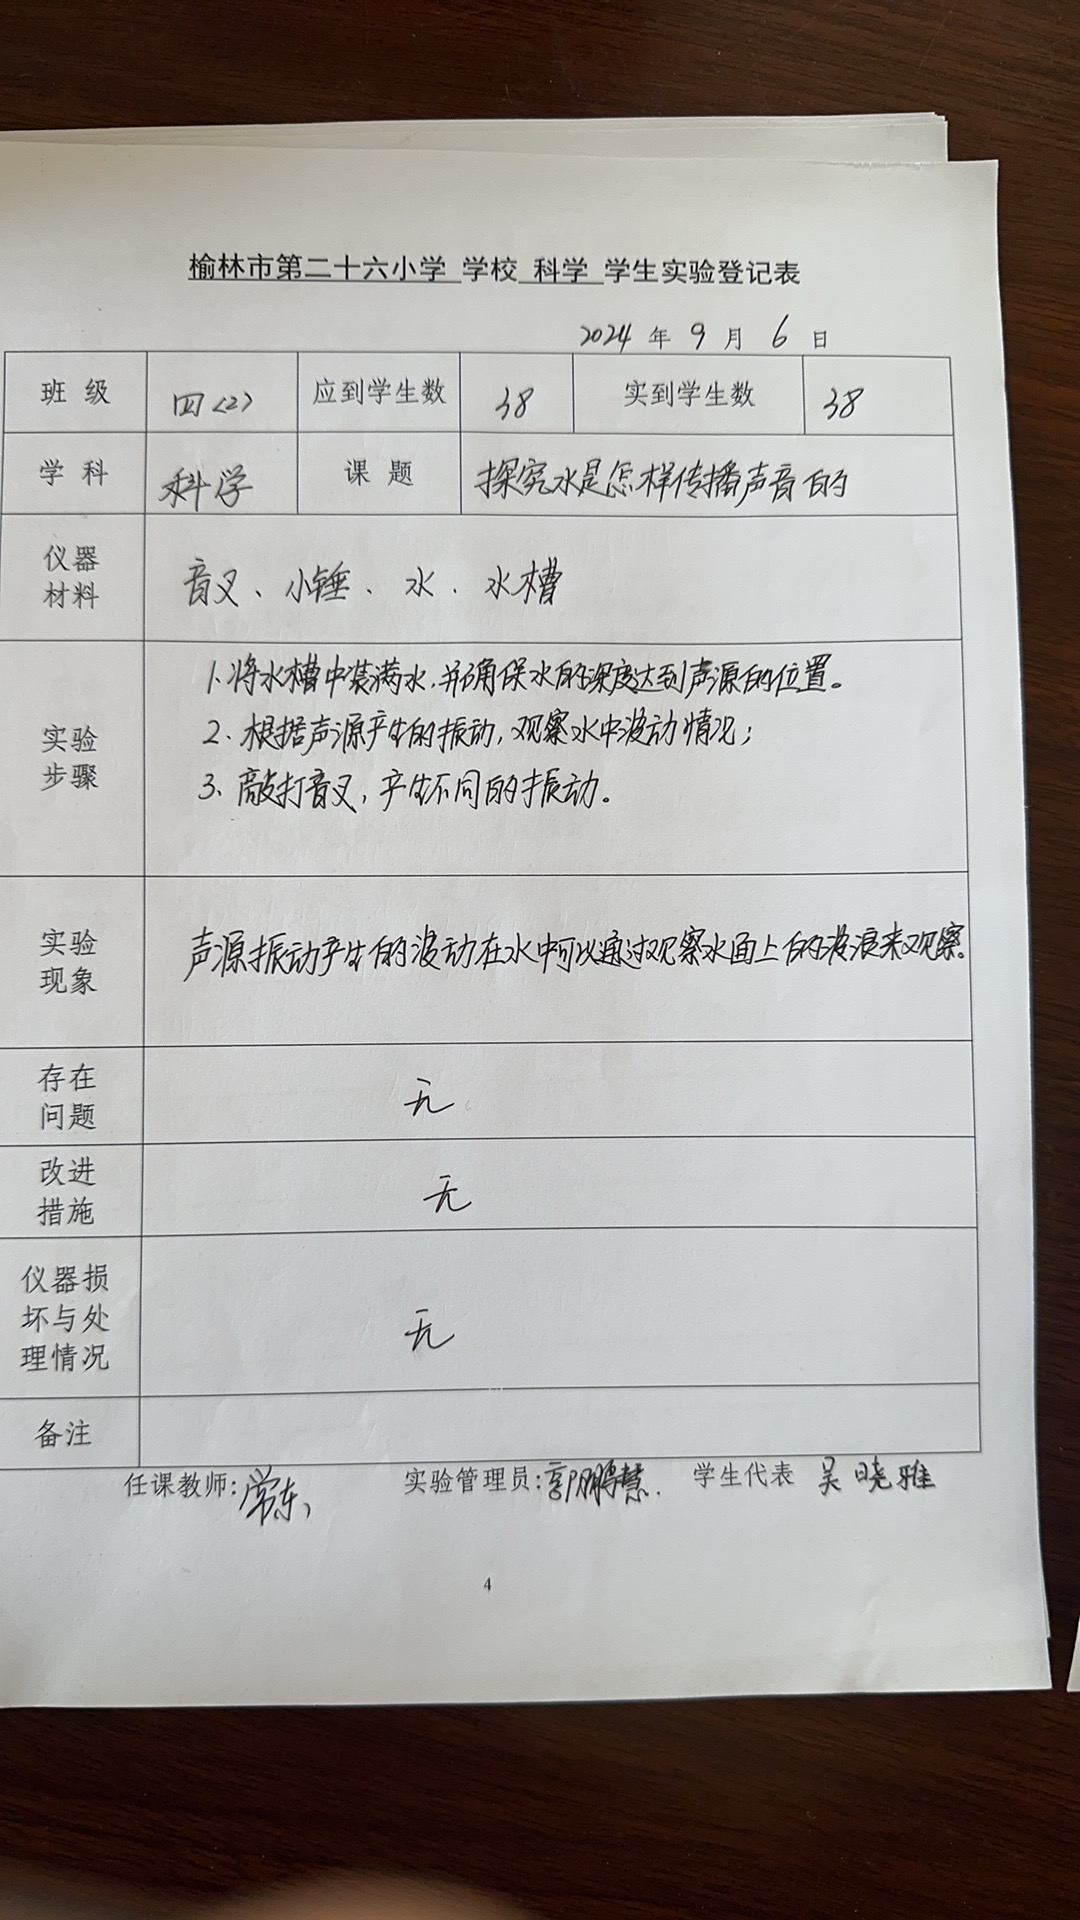 榆林市第二十六小学 学校 科学 学生实验登记表
2024 年 9 月 6 日
班级 四(2) 应到学生数 38 实到学生数 38
学科 科学 课题 探究水是怎样传播声音的
仪器
材料
音叉、小锤、水、水槽
实验
步骤
1.将水槽中装满水,并确保水的深度达到声源的位置。
2.根据声源产生的振动,观察水中波动情况;
3、敲打音叉,产生不同的振动。
实验
现象
声源振动产生的波动在水中可以通过观察水面上的波浪来观察。
存在
问题
无
改进
措施
无
仪器损
坏与处
理情况
无
备注
任课教师:常东 实验管理员:郭鹏慧. 学生代表 吴晓雅
4